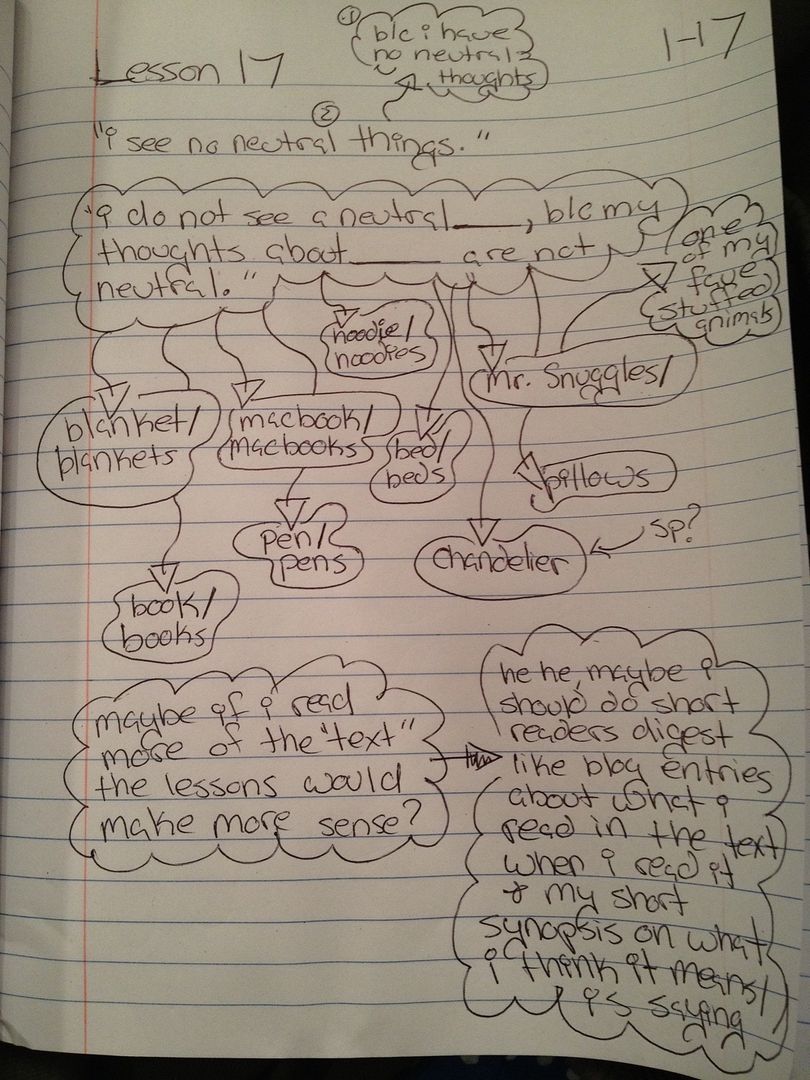 Lesson 17
1-17
1
b/c i have
no neutral
thoughts
2
"i see no neutral things."
"i do not see a neutral____, b/c my
thoughts about_____ are not
neutral."
one
of my
fave
stuffed
animals
hoodie/
hoodies
Mr. Snuggles/
blanket/
blankets
macbook/
macbooks
bed/
beds
pillows
pen/
pens
chandelier
sp?
book/
books
maybe if i read
more of the "text"
the lessons would
make more sense?
he he, maybe i
should do short
readers digest
like blog entries
about what i
read in the text
when i read it
+ my short
synopsis on what
i think it means/
is saying